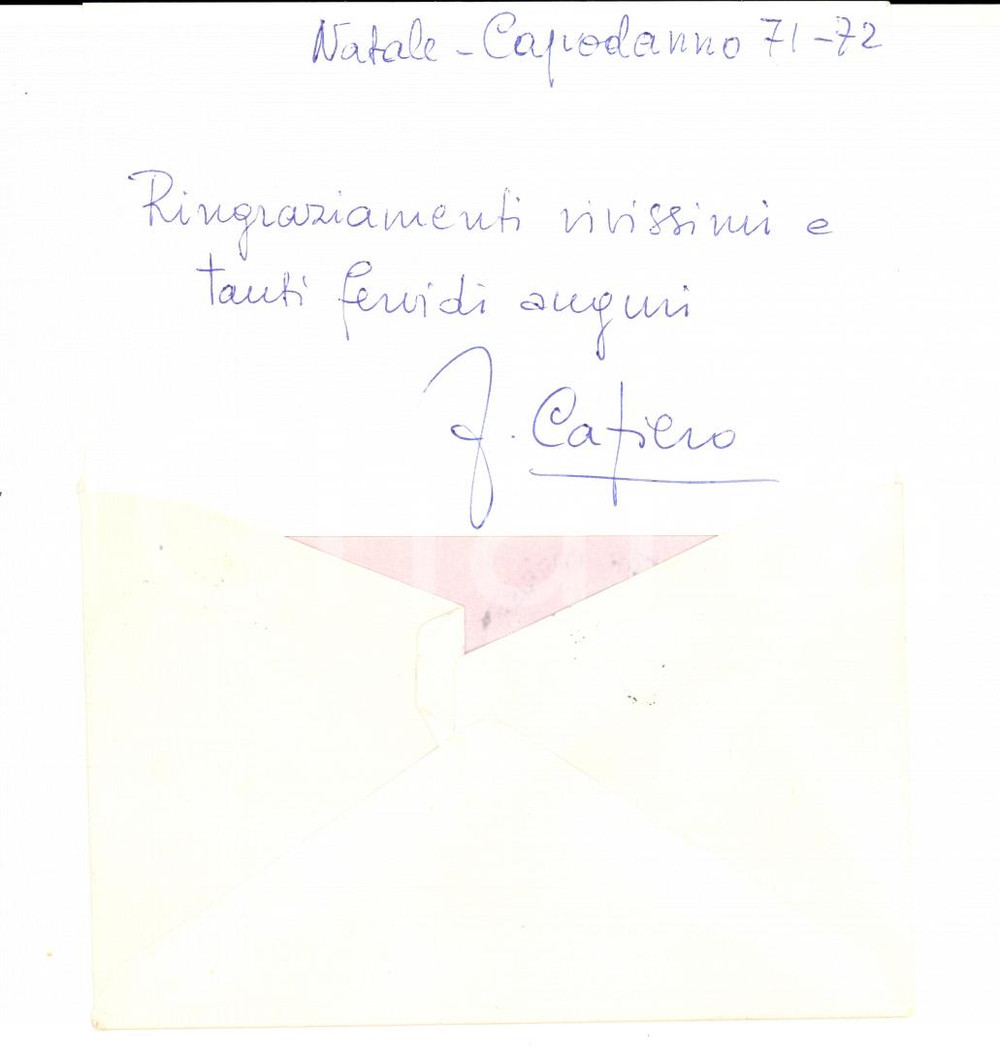 Natale - Capodanno 71-72
Ringraziamenti vivissimi e
tanti fervidi auguri
Cafiero